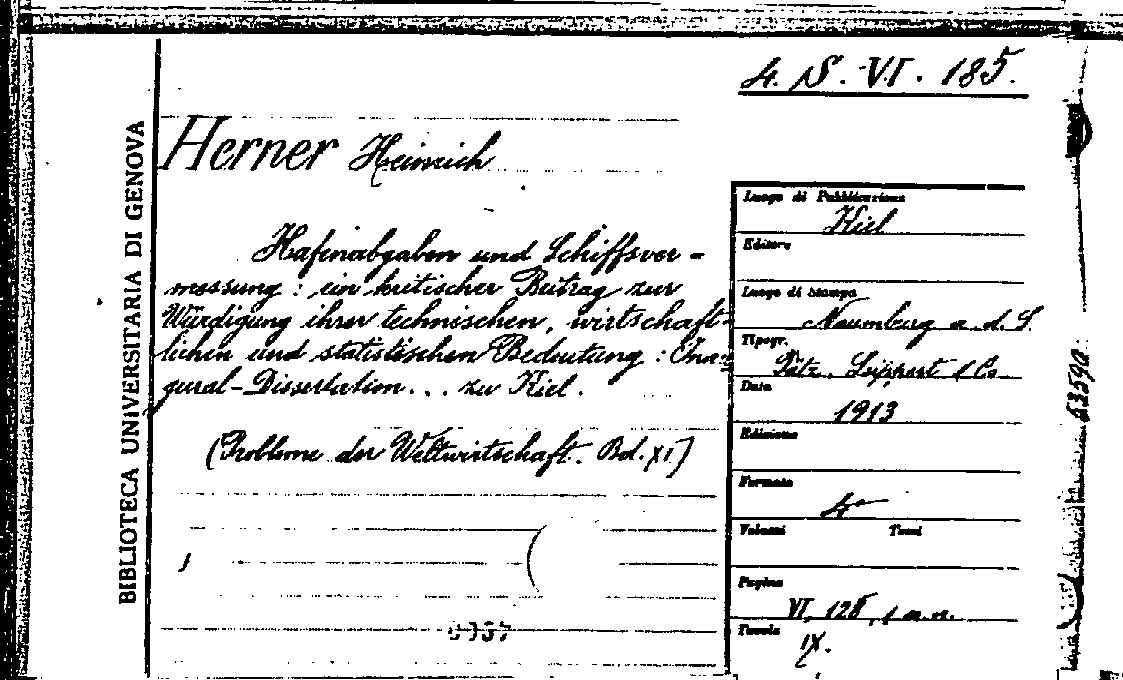 4. S. VI. 185.
BIBLIOTECA UNIVERSITARIA DI GENOVA
Herner Heinrich
Hafenabgaben und Schiffsver-
messung : ein kritischer Beitrag zur
Würdigung ihrer technischen, wirtschaft-
lichen und statistischen Bedeutung : Inau-
gural-Dissertation... zu Kiel.
(Probleme der Weltwirtschaft. Bd. XI)
Luogo di Pubblicazione
Kiel
Editore
Luogo di Stampa
Naumburg a. d. S.
Tipogr.
Pätz. Lippert & Co
Data
1913
Edizione
Formato
4°
Volumi Tomi
Pagine
VI, 128, 1 n.n.
Tavole
IX.
63590